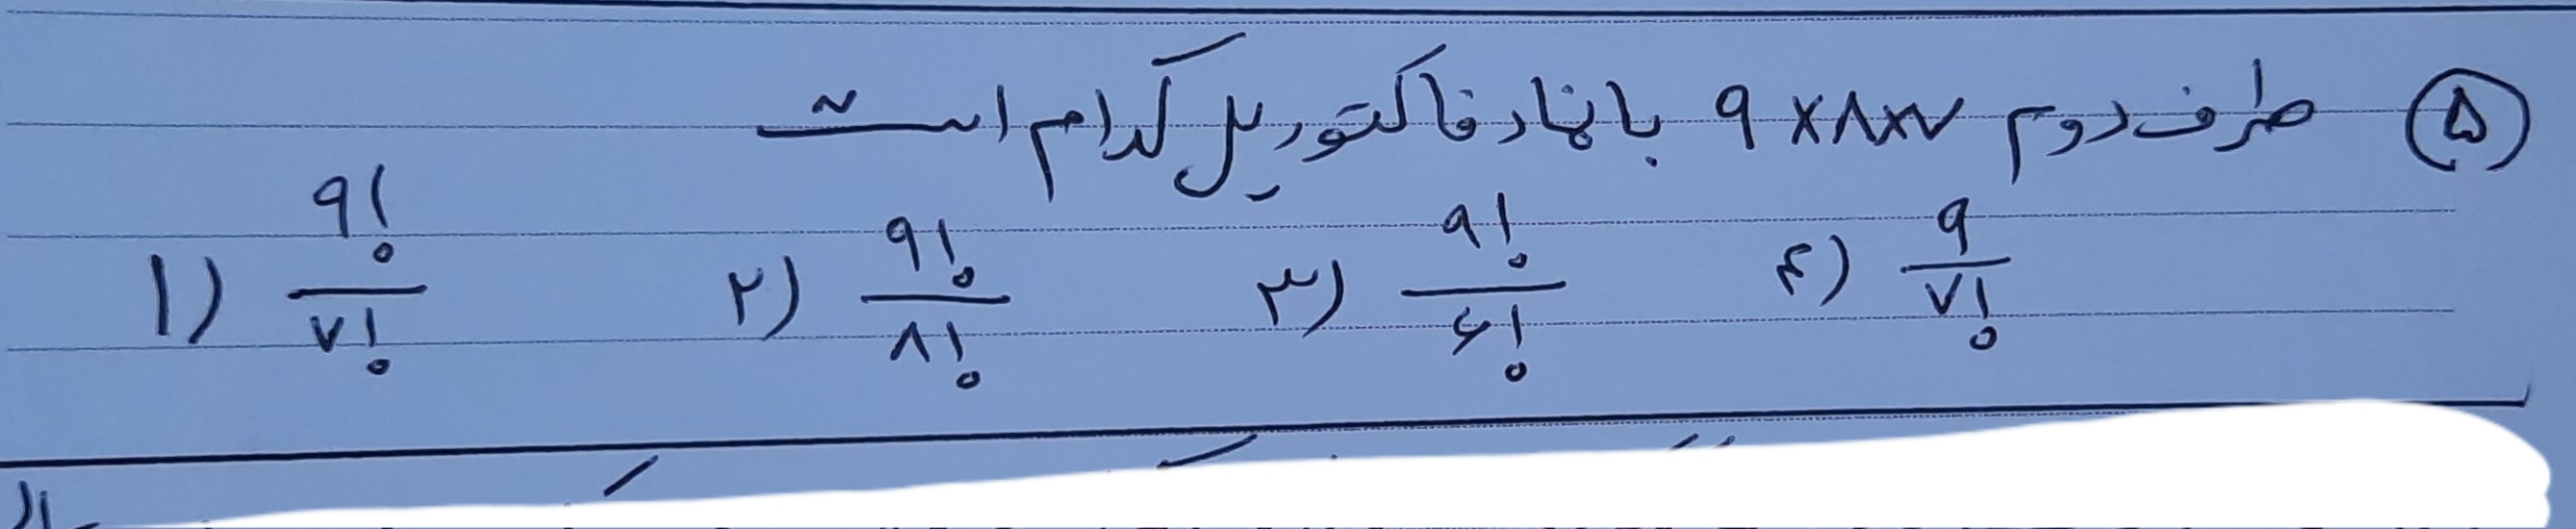 ۵ طرف دوم ۹×۸×۷ با نماد فاکتوریل کدام است
۱) ۹!/۷! ۲) ۹!/۸! ۳) ۹!/۶! ۴) ۹/۷!